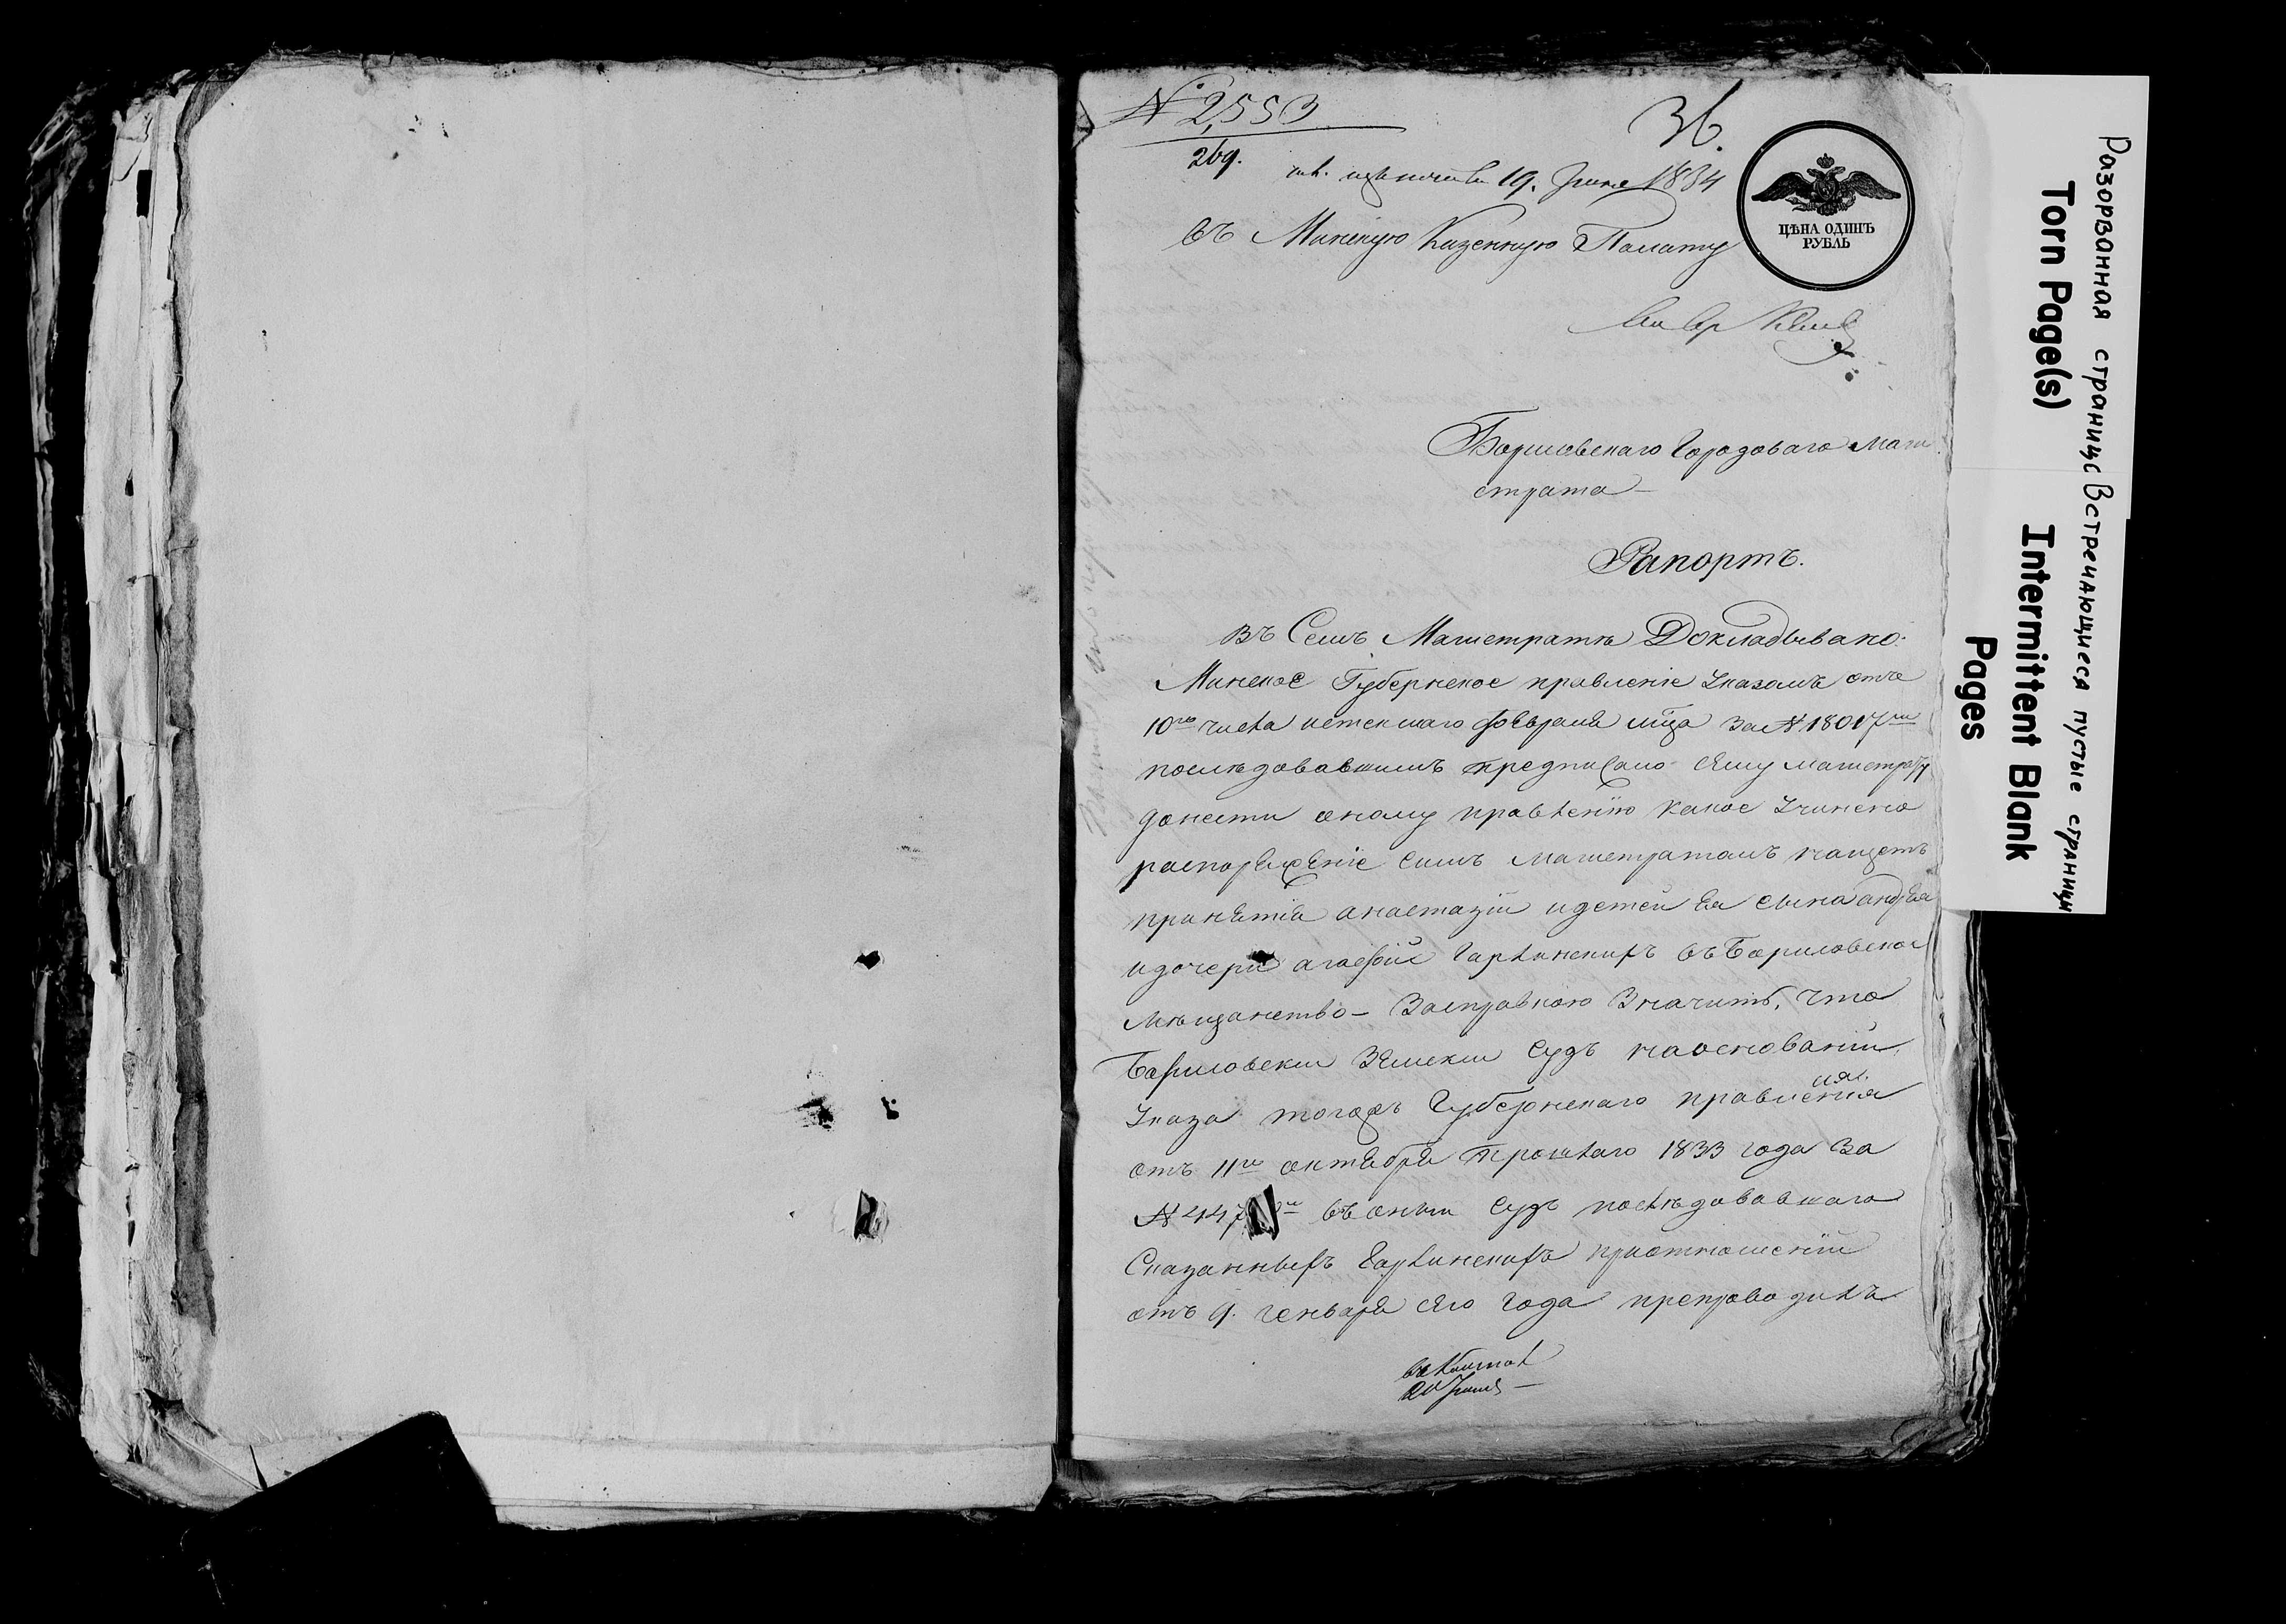 № 2,553
269.
36.
19. Іюня 1834
ЦѢНА ОДИНЪ
РУБЛЬ
Въ Минскую Казенную Палату
Борисовскаго Городоваго Маги
страта
Рапортъ.
Въ Семъ Магистратѣ Докладывано:
Минское Губернское правленіе Указомъ отъ
10го числа истекшаго февраля мца За № 18017мъ
последовавшимъ предписало сему магистрату
донести оному правленію какое Учинено
распоряженіе симъ магистратомъ нащетъ
принятія анастазіи и детей Ея сына андрея
и дочери агафіи Гарлинскихъ въ Борисовское
мѣщанство – Засправкою Значитъ, что
Борисовски Земски Судъ наосновании
Указа тогожъ Губернскаго правления
ия.
отъ 11го октября прошлаго 1833 года За
№ 447 въ оный Судъ послѣдовавшаго
Сказанныхъ Гарлинскихъ приотношеніи
отъ 9. генваря сего года препроводилъ
20 Іюня
Разорванная страница
Torn Page(s)
Встречающиеся пустые страницы
Intermittent Blank
Pages